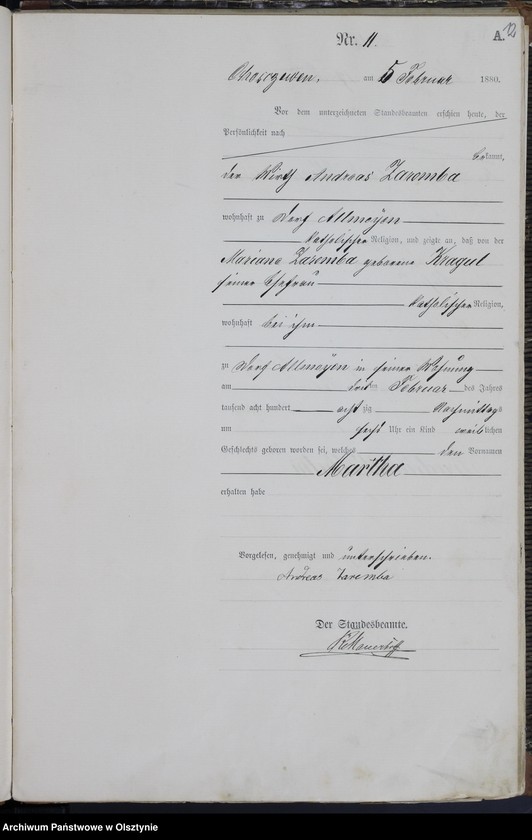 12
Nr. 11.
A.
am 5 Februar 1880.
Vor dem unterzeichneten Standesbeamten erschien heute, der
Persönlichkeit nach
bekannt,
der Wirth Andreas Zaromba
wohnhaft zu Dorf Allmoyen
katholischer Religion, und zeigte an, daß von der
Mariane Zaromba geborene Kragul
seiner Ehefrau
katholischer Religion,
wohnhaft bei ihm
zu Dorf Allmoyen in seiner Wohnung
am dritten Februar des Jahres
tausend acht hundert achtzig Nachmittags
um sechs Uhr ein Kind weiblichen
Geschlechts geboren worden sei, welches den Vornamen
Martha
erhalten habe
Vorgelesen, genehmigt und unterschrieben.
Andreas Zaremba
Der Standesbeamte.
Archiwum Państwowe w Olsztynie